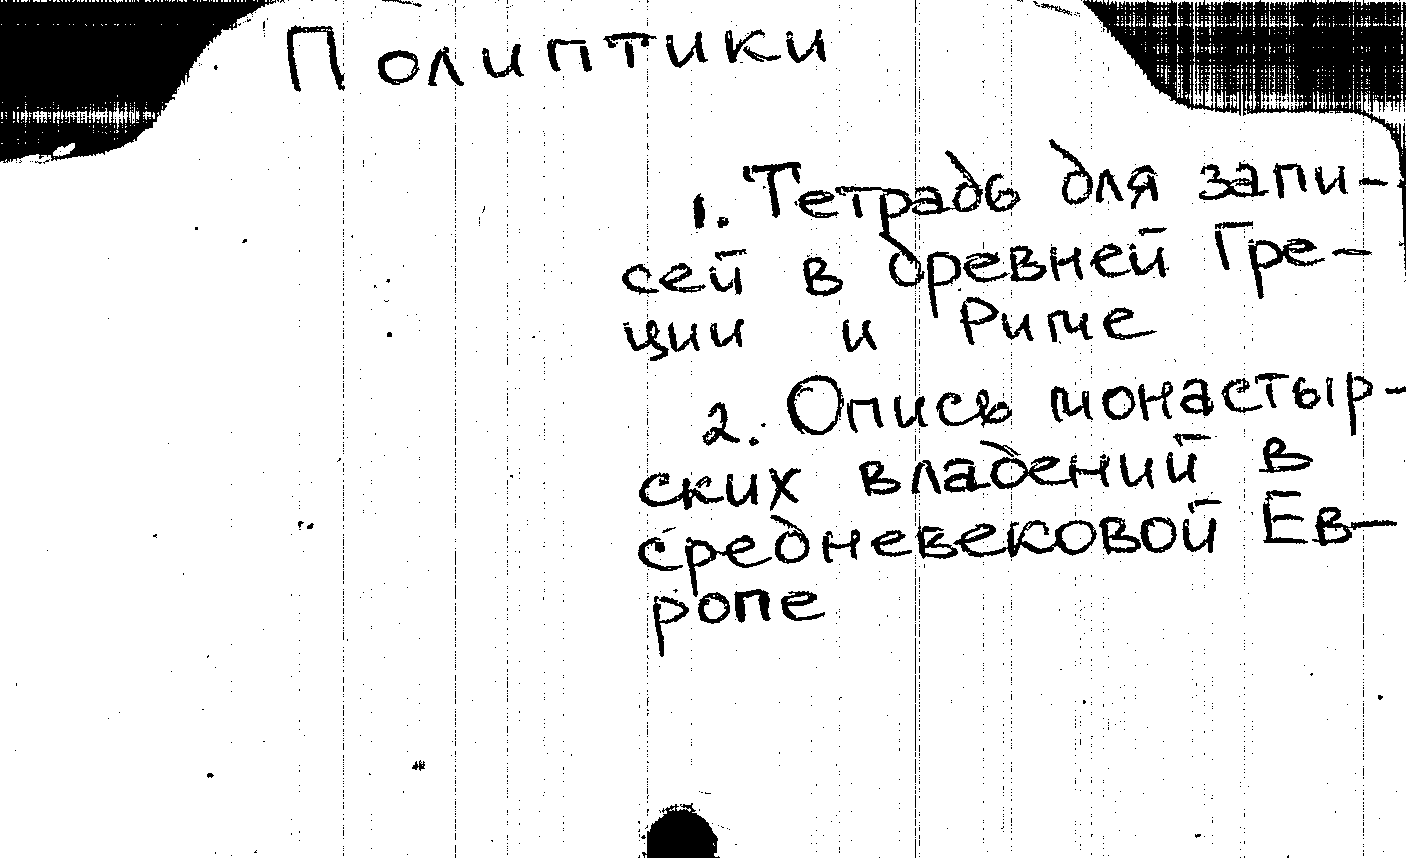 Полиптики
1. Тетрадь для запи-
сей в древней Гре-
ции и Риме
2. Опись монастыр-
ских владений в
средневековой Ев-
ропе